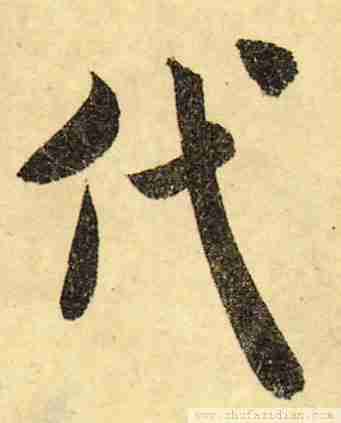 代
www.shufazidian.com